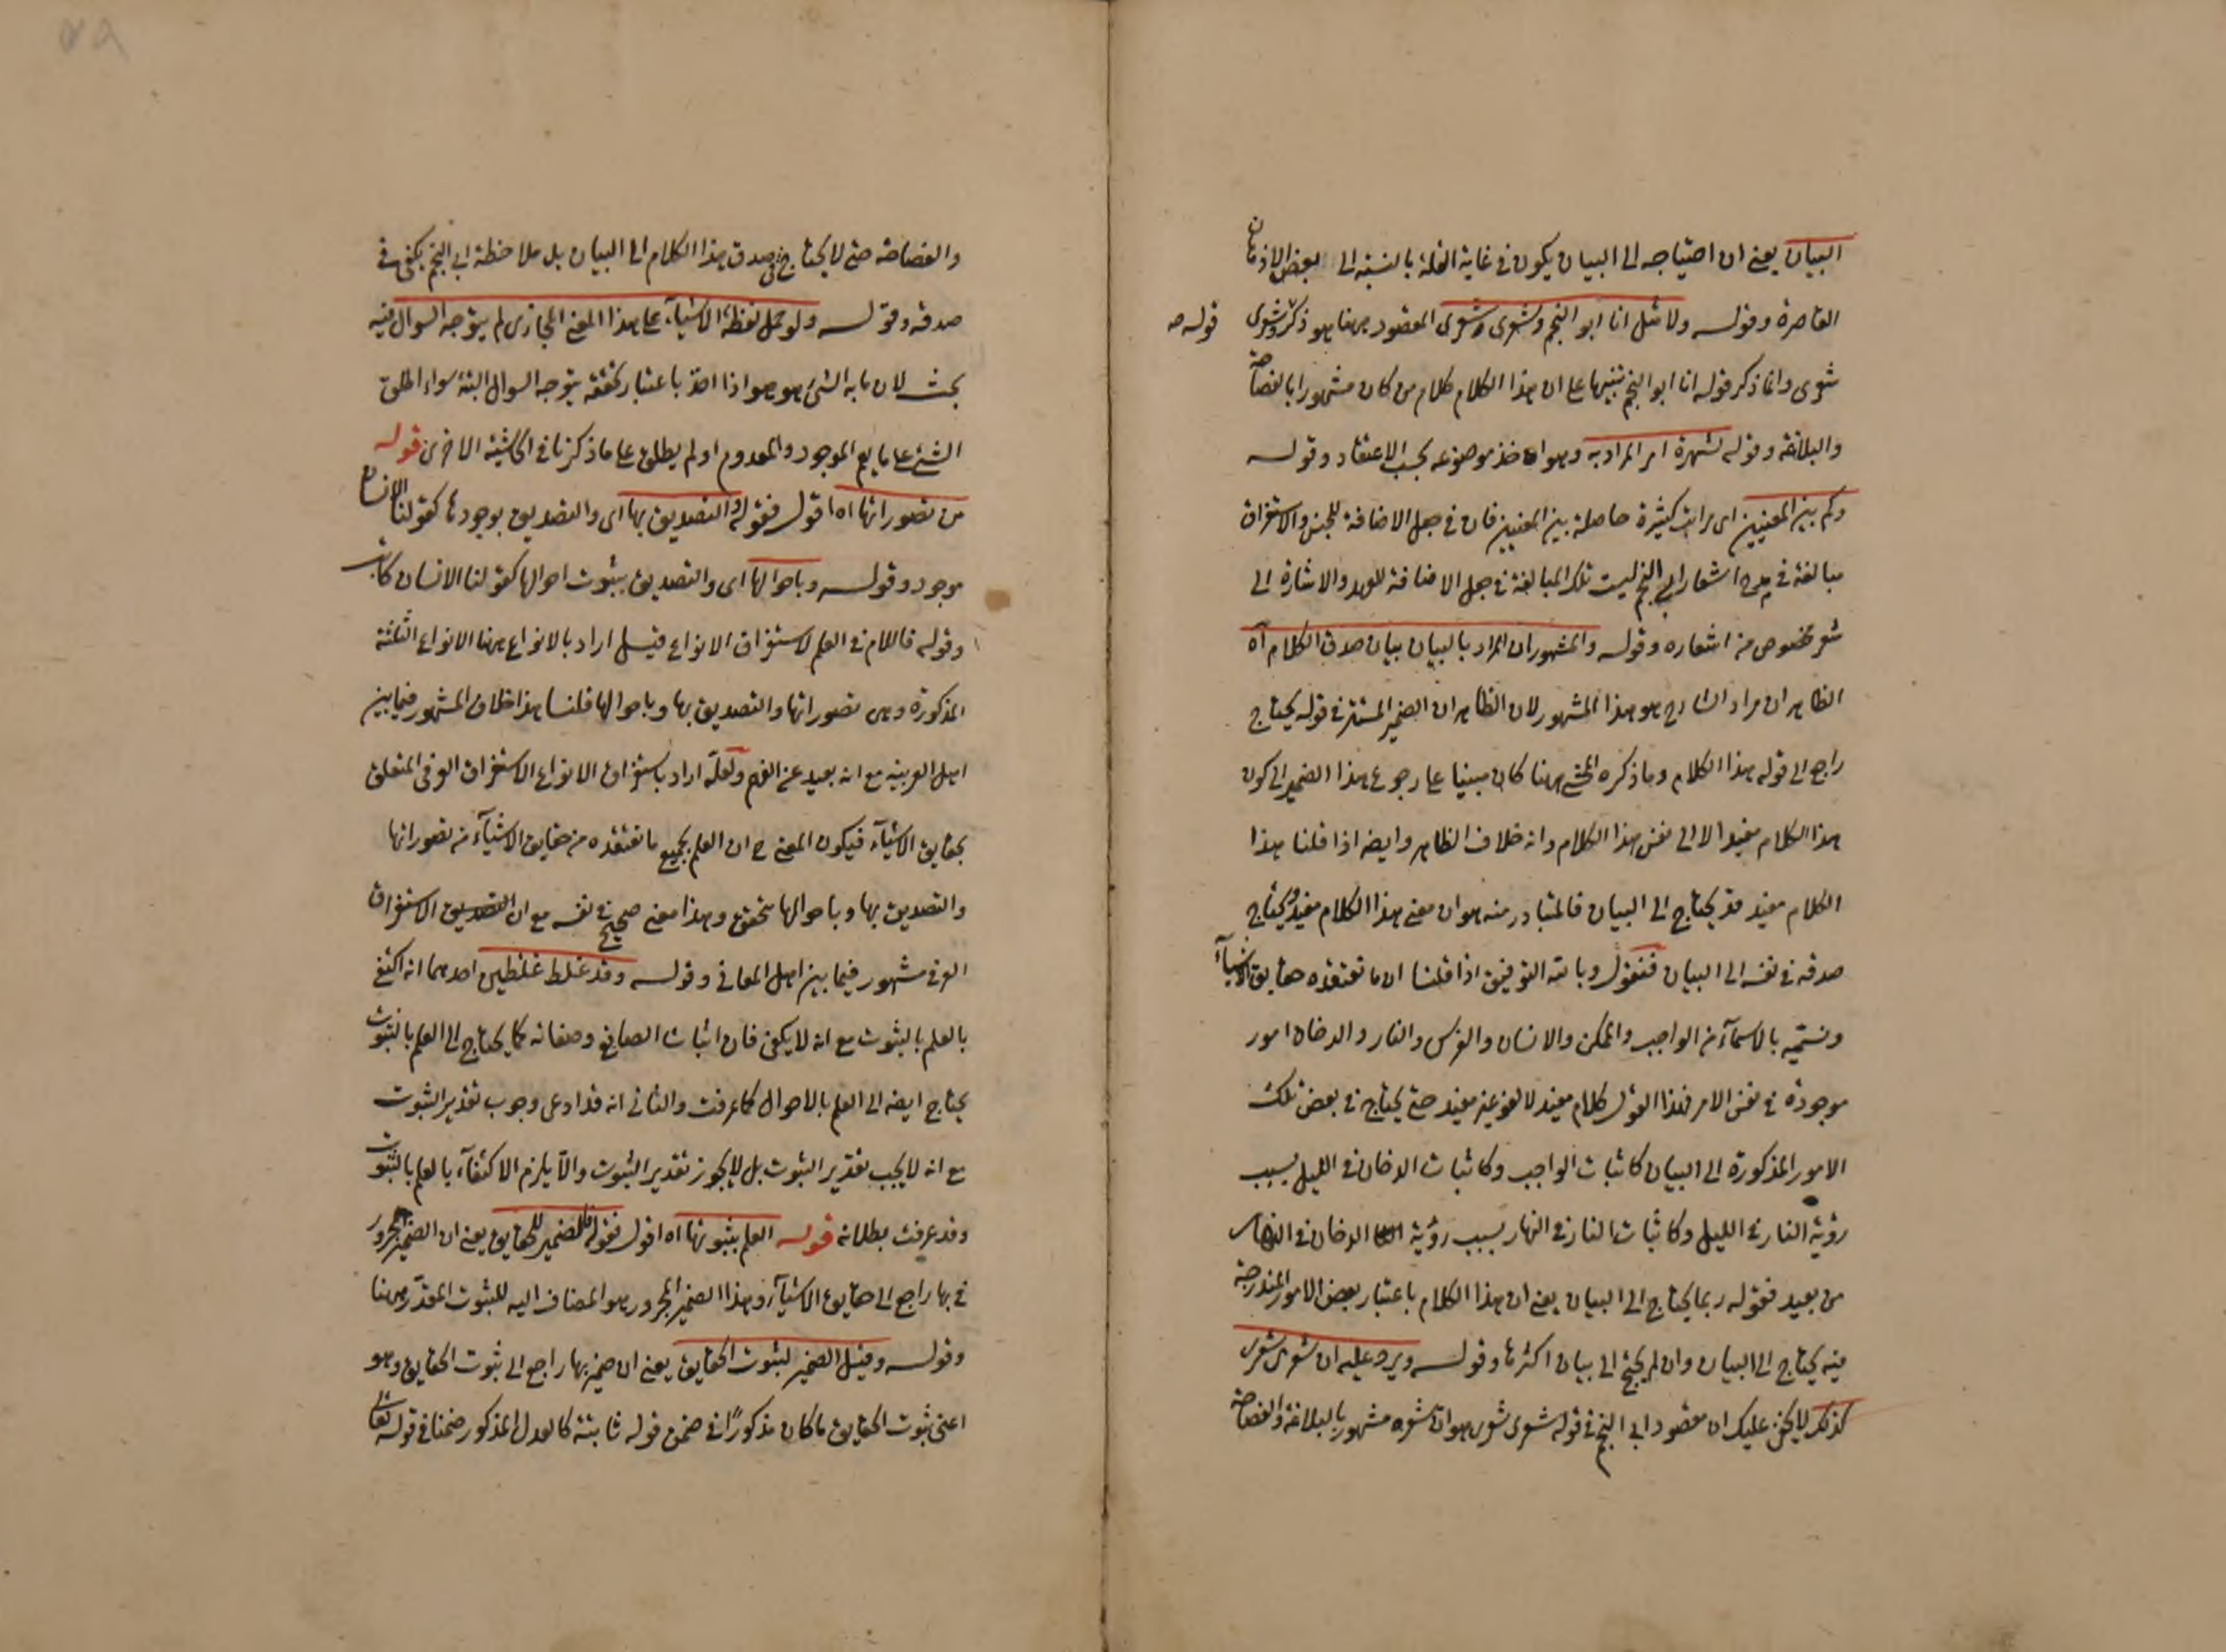 البيان يعنى ان احتياجه الى البيان يكون فى غاية القلة بالنسبة الى بعض الاذهان
القاصرة وقوله ولا مثل انا ابو النجم وشعرى شعرى المقصود ههنا هو ذكر وشعرى
قوله صح
شعرى وانما ذكر قوله انا ابو النجم تنبيها على ان هذا الكلام كلام من كان مشهورا بالفصاحة
والبلاغة وقوله لشهرة امر المراد به وهو اخذ موضوعه بحسب الاعتقاد وقوله
وكم بين المعنيين اى مراتب كثيرة حاصلة بين المعنيين فان فى جعل الاضافة للجنس والاستغراق
مبالغة فى مدح اشعار ابى النجم ليست تلك المبالغة فى جعل الاضافة للعهد والاشارة الى
شعر مخصوص من اشعاره وقوله والمشهور ان المراد بالبيان بيان صدق الكلام آه
الظاهر ان مراد الشارح هو هذا المشهور لان الظاهر ان الضمير المستتر فى قوله يحتاج
راجع الى قوله هذا الكلام وما ذكره المحشى ههنا كان مبنيا على رجوع هذا الضمير الى كون
هذا الكلام مفيدا لا الى نفس هذا الكلام وانه خلاف الظاهر وايضا اذا قلنا هذا
الكلام مفيد قد يحتاج الى البيان فالمتبادر منه هو ان معنى هذا الكلام مفيد ويحتاج
صدقه فى نفسه الى البيان فنقول وبالله التوفيق اذا قلنا ان ما نعتقده حقايق الاشياء
ونسميه بالاسماء من الواجب والممكن والانسان والفرس والنار والدخان امور
موجودة فى نفس الامر فهذا القول كلام مفيد لا لغو غير مفيد حتى يحتاج فى بعض تلك
الامور المذكورة الى البيان كاثبات الواجب وكاثبات الدخان فى الليل بسبب
رؤية النار فى الليل وكاثبات النار فى النهار بسبب رؤية الدخان فى النهار
من بعيد فقوله ربما يحتاج الى البيان يعنى ان هذا الكلام باعتبار بعض الامور المندرجة
فيه يحتاج الى البيان وان لم يحتج الى بيان اكثرها وقوله ويرد عليه ان شعرى شعرى
كذلك لا يخفى عليك ان مقصود ابى النجم فى قوله شعرى شعرى هو ان شعره مشهور بالبلاغة والفصاحة
والفصاحة حتى لا يحتاج فى صدق هذا الكلام الى البيان بل ملاحظة ابى النجم يكفى فى
صدقه وقوله ولو حمل لفظة الاشياء على هذا المعنى المجازى لم يتوجه السوال فيه
بحث لان ما به الشئ هو هو اذا اخذ باعتبار تحققه يتوجه السوال البتة سواء اطلق
الشئ على ما يعم الموجود والمعدوم او لم يطلق على ما ذكرنا فى الحاشية الاخرى قوله
من تصوراتها اه اقول فقوله والتصديق بها اى والتصديق بوجودها كقولنا الانسان
موجود وقوله وباحوالها اى والتصديق بثبوت احوالها كقولنا الانسان كاتب
وقوله فاللام فى العلم لاستغراق الانواع قيل اراد بالانواع ههنا الانواع الثلثة
المذكورة وهى تصوراتها والتصديق بها وباحوالها قلنا هذا خلاف المشهور فيما بين
اهل العربية مع انه بعيد عن الفهم ولعله اراد باستغراق الانواع الاستغراق العرفى المتعلق
بحقايق الاشياء فيكون المعنى ح ان العلم بجميع ما نعتقده من حقايق الاشياء من تصوراتها
والتصديق بها وباحوالها متحقق وهذا معنى صحيح فى نفسه مع ان الاستغراق
العرفى مشهور فيما بين اهل المعانى وقوله وقد غلط غلطين احدهما انه اكتفى
بالعلم بالثبوت مع انه لا يكفى فان اثبات الصانع وصفاته كما يحتاج الى العلم بالثبوت
يحتاج ايضا الى العلم بالاحوال كما عرفت والثانى انه قد ادعى وجوب تقدير الثبوت
مع انه لا يجب تقدير الثبوت بل لا يجوز تقدير الثبوت والا يلزم الاكتفاء بالعلم بالثبوت
وقد عرفت بطلانه قوله العلم بثبوتها اه اقول فقوله فالضمير للحقايق يعنى ان الضمير المجرور
فى بها راجع الى حقايق الاشياء وهذا الضمير المجرور هو المضاف اليه للثبوت المقدر ههنا
وقوله وقيل الضمير لثبوت الحقايق يعنى ان ضمير بها راجع الى ثبوت الحقايق وهو
اعنى ثبوت الحقايق ما كان مذكورا فى ضمن قوله ثابتة كالعدل المذكور ضمنا فى قوله تعالى